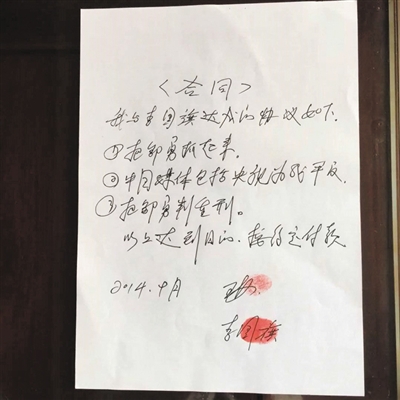 〈合同〉
我与李国旗达成的协议如下.
①把邹勇抓起来.
②中国媒体包括央视为我平反.
③把邹勇判重刑.
以上达到目的.按约定付款.
2014.十月
李国旗